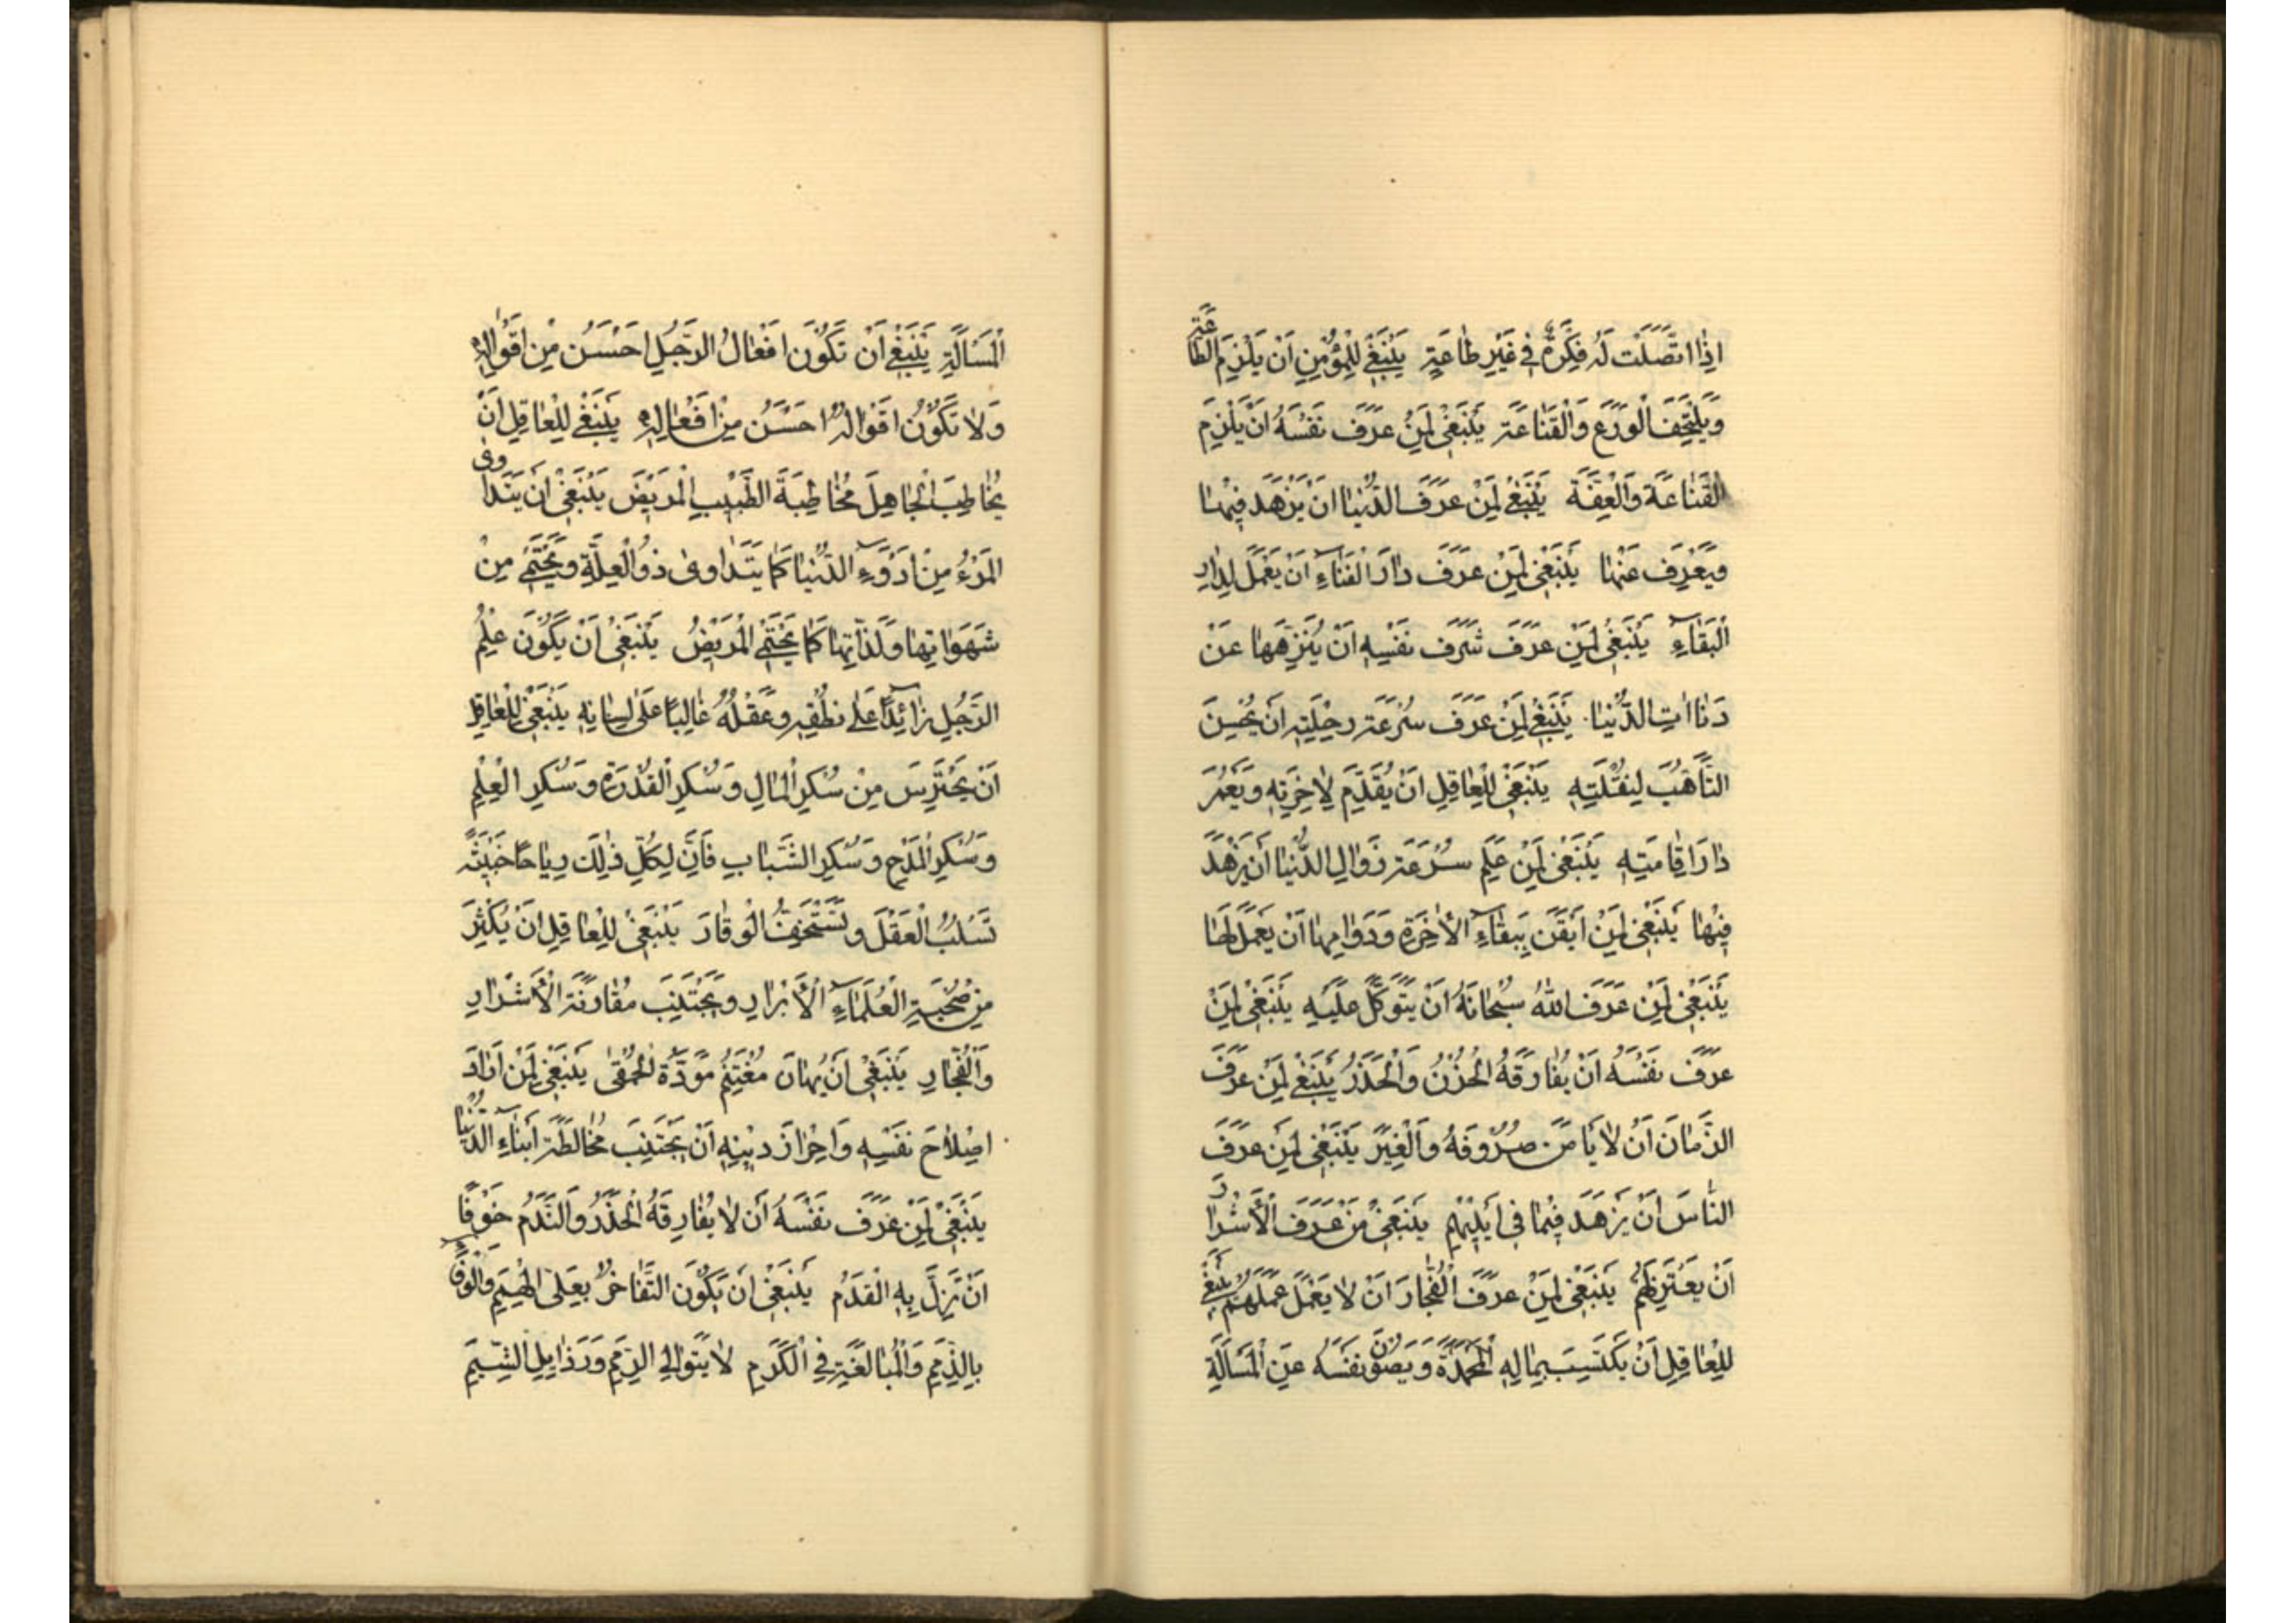 اِذَا اتَّصَلَتْ لَهُ فِكْرَةٌ فِي غَيْرِ طَاعَةٍ يَنْبَغِي لِلْمُؤْمِنِ اَنْ يَلْزِمَ الطَّاعَةَ
وَيَلْتَحِفَ الْوَرَعَ وَالْقَنَاعَةَ يَنْبَغِي لِمَنْ عَرَفَ نَفْسَهُ اَنْ يَلْزِمَ
الْقَنَاعَةَ وَالْعِفَّةَ يَنْبَغِي لِمَنْ عَرَفَ الدُّنْيَا اَنْ يَزْهَدَ فِيهَا
وَيَعْزِفَ عَنْهَا يَنْبَغِي لِمَنْ عَرَفَ دَارَ الْفَنَاءِ اَنْ يَعْمَلَ لِدَارِ
الْبَقَاءِ يَنْبَغِي لِمَنْ عَرَفَ شَرَفَ نَفْسِهِ اَنْ يُنَزِّهَهَا عَنْ
دَنَااتِ الدُّنْيَا يَنْبَغِي لِمَنْ عَرَفَ سُرْعَةَ رِحْلَتِهِ اَنْ يُحْسِنَ
التَّأَهُّبَ لِنُقْلَتِهِ يَنْبَغِي لِلْعَاقِلِ اَنْ يُقَدِّمَ لِاٰخِرَتِهِ وَيَعْمُرَ
دَارَ اِقَامَتِهِ يَنْبَغِي لِمَنْ عَلِمَ سُرْعَةَ زَوَالِ الدُّنْيَا اَنْ يَزْهَدَ
فِيهَا يَنْبَغِي لِمَنْ اَيْقَنَ بِبَقَاءِ الْاٰخِرَةِ وَدَوَامِهَا اَنْ يَعْمَلَ لَهَا
يَنْبَغِي لِمَنْ عَرَفَ اللّٰهَ سُبْحَانَهُ اَنْ يَتَوَكَّلَ عَلَيْهِ يَنْبَغِي لِمَنْ
عَرَفَ نَفْسَهُ اَنْ يُفَارِقَهُ الْحُزْنُ وَالْحَذَرُ يَنْبَغِي لِمَنْ عَرَفَ
الزَّمَانَ اَنْ لَا يَامَنَ صُرُوفَهُ وَالْغِيَرَ يَنْبَغِي لِمَنْ عَرَفَ
النَّاسَ اَنْ يَزْهَدَ فِيمَا فِي اَيْدِيهِمْ يَنْبَغِي مَنْ عَرَفَ الْاَشْرَارَ
اَنْ يَعْتَزِلَهُمْ يَنْبَغِي لِمَنْ عَرَفَ الْفُجَّارَ اَنْ لَا يَعْمَلَ عَمَلَهُمْ يَنْبَغِي
لِلْعَاقِلِ اَنْ يَكْتَسِبَ بِمَالِهِ الْمَحْمَدَةَ وَيَصُونَ نَفْسَهُ عَنِ الْمَسْأَلَةِ
الْمَسْأَلَةِ يَنْبَغِي اَنْ تَكُونَ اَفْعَالُ الرَّجُلِ اَحْسَنَ مِنْ اَقْوَالِهِ
وَلَا تَكُونُ اَقْوَالُهُ اَحْسَنُ مِنْ اَفْعَالِهِ يَنْبَغِي لِلْعَاقِلِ اَنْ
يُخَاطِبَ الْجَاهِلَ مُخَاطَبَةَ الطَّبِيبِ الْمَرِيضَ يَنْبَغِي اَنْ يَتَدَاوى
الْمَرْءُ مِنْ اَدْوَءِ الدُّنْيَا كَمَا يَتَدَاوى ذُو الْعِلَّةِ وَيَحْتَمِي مِنْ
شَهَوَاتِهَا وَلَذَّاتِهَا كَمَا يَحْتَمِي الْمَرِيضُ يَنْبَغِي اَنْ يَكُونَ عِلْمُ
الرَّجُلِ زَائِدًا عَلَى نُطْقِهِ وَعَقْلُهُ غَالِبًا عَلَى لِسَانِهِ يَنْبَغِي لِلْعَاقِلِ
اَنْ يَحْتَرِسَ مِنْ سُكْرِ الْمَالِ وَسُكْرِ الْقُدْرَةِ وَسُكْرِ الْعِلْمِ
وَسُكْرِ الْمَدْحِ وَسُكْرِ الشَّبَابِ فَاِنَّ لِكُلِّ ذٰلِكَ رِيَاحًا خَبِيثَةً
تَسْلُبُ الْعَقْلَ وَتَسْتَخِفُّ الْوَقَارَ يَنْبَغِي لِلْعَاقِلِ اَنْ يُكْثِرَ
مِنْ صُحْبَةِ الْعُلَمَاءِ الْاَبْرَارِ وَيَجْتَنِبَ مُقَارَنَةَ الْاَشْرَارِ
وَالْفُجَّارِ يَنْبَغِي اَنْ يُهَانَ مُغْتَنِمُ مَوَدَّةَ الْحَمْقَى يَنْبَغِي لِمَنْ اَرَادَ
اِصْلَاحَ نَفْسِهِ وَاِحْرَازَ دِينِهِ اَنْ يَجْتَنِبَ مُخَالَطَةَ اَبْنَاءِ الدُّنْيَا
يَنْبَغِي لِمَنْ عَرَفَ نَفْسَهُ اَنْ لَا يُفَارِقَهُ الْحَذَرُ وَالنَّدَمُ خَوْفًا
اَنْ تَزِلَّ بِهِ الْقَدَمُ يَنْبَغِي اَنْ يَكُونَ التَّفَاخُرُ بِعَلَى الْهِمَمِ وَالْوَفَاءِ
بِالذِّمَمِ وَالْمُبَالَغَةِ فِي الْكَرَمِ لَا يَتَوَالِي الرِّمَمِ وَرَذَايِلِ الشِّيَمِ